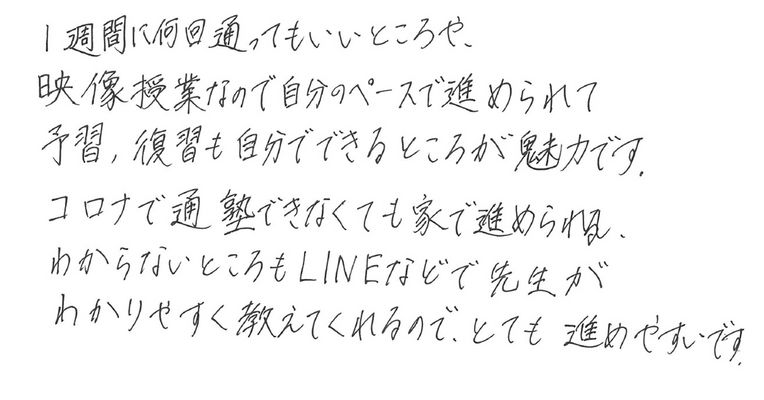 1週間に何回通ってもいいところや、
映像授業なので自分のペースで進められて
予習,復習も自分でできるところが魅力です.
コロナで通塾できなくても家で進められるし、
わからないところもLINEなどで先生が
わかりやすく教えてくれるので、とても進めやすいです.